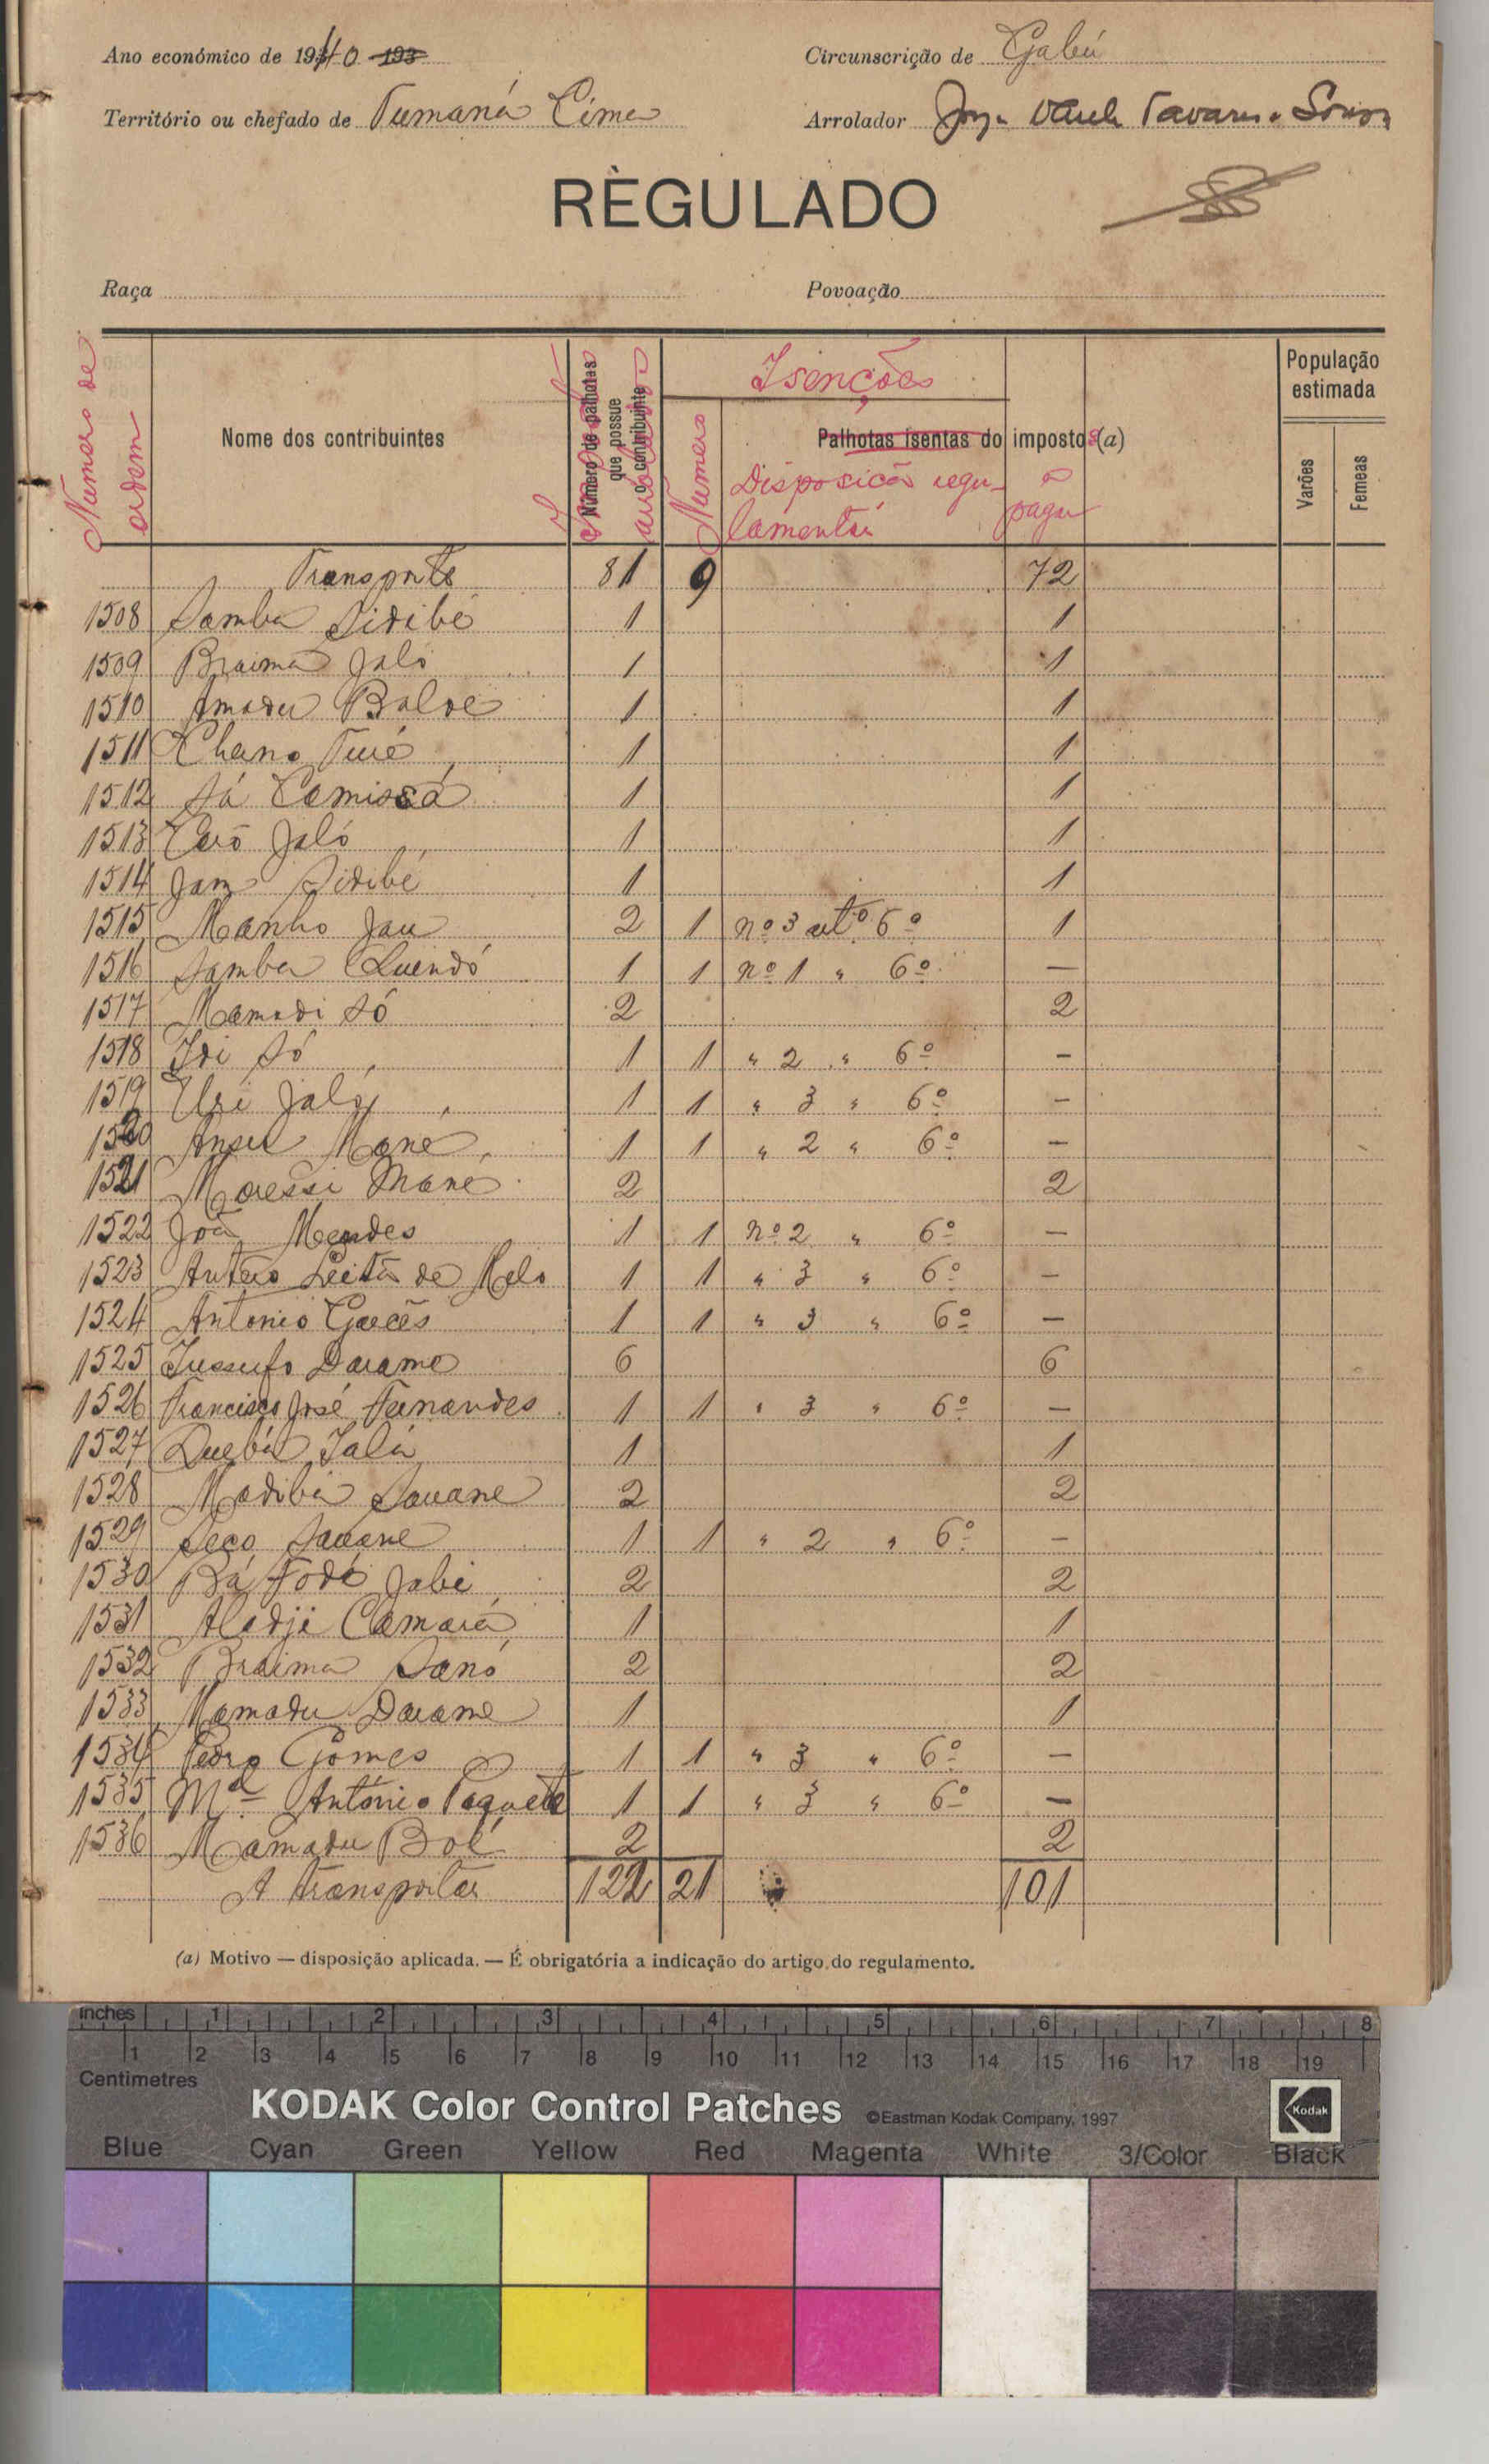 Ano económico de 1940 193
Circunscrição de Gabú
Território ou chefado de Tumaná Cima
Arrolador Tavares Sousa
RÈGULADO
Raça
Povoação
Número de ordem
Nome dos contribuintes
Número de palhotas que possue o contribuinte
Isenções
Número
Palhotas isentas do impostos (a)
Disposição regulamentar
a pagar
População estimada
Varões
Femeas
Transporte 81 9 72
1508 Samba Sidibé 1 1
1509 Braima Jaló 1 1
1510 Amadu Balde 1 1
1511 Cherno Turé 1 1
1512 Sá Camissá 1 1
1513 Jaló 1 1
1514 Sidibé 1 1
1515 Manho Jau 2 1 nº 3 artº 6º 1
1516 Samba Quendó 1 1 nº 1 " 6º —
1517 Mamadi Só 2 2
1518 Idi Só 1 1 " 2 " 6º —
1519 Uri Jaló 1 1 " 3 " 6º —
1520 Ansu Mané 1 1 " 2 " 6º —
1521 Mané 2 2
1522 João Mendes 1 1 nº 2 " 6º —
1523 Antero Leitão de Melo 1 1 " 3 " 6º —
1524 Antonio Garcês 1 1 " 3 " 6º —
1525 Jussufo Darame 6 6
1526 Francisco José Fernandes 1 1 " 3 " 6º —
1527 Quebá 1 1
1528 Madiba Sauane 2 2
1529 Seco Sauane 1 1 " 2 " 6º —
1530 Bá Fodé Jabi 2 2
1531 Aladje Camará 1 1
1532 Braima Sanó 2 2
1533 Mamadu Darame 1 1
1534 Pedro Gomes 1 1 " 3 " 6º —
1535 Mel António Paquete 1 1 " 3 " 6º —
1536 Mamadu Boé 2 2
A transportar 122 21 101
(a) Motivo — disposição aplicada. — É obrigatória a indicação do artigo do regulamento.
inches 1 2 3 4 5 6 7 8
1 2 3 4 5 6 7 8 9 10 11 12 13 14 15 16 17 18 19
Centimetres
KODAK Color Control Patches ©Eastman Kodak Company, 1997 Kodak
Blue Cyan Green Yellow Red Magenta White 3/Color Black